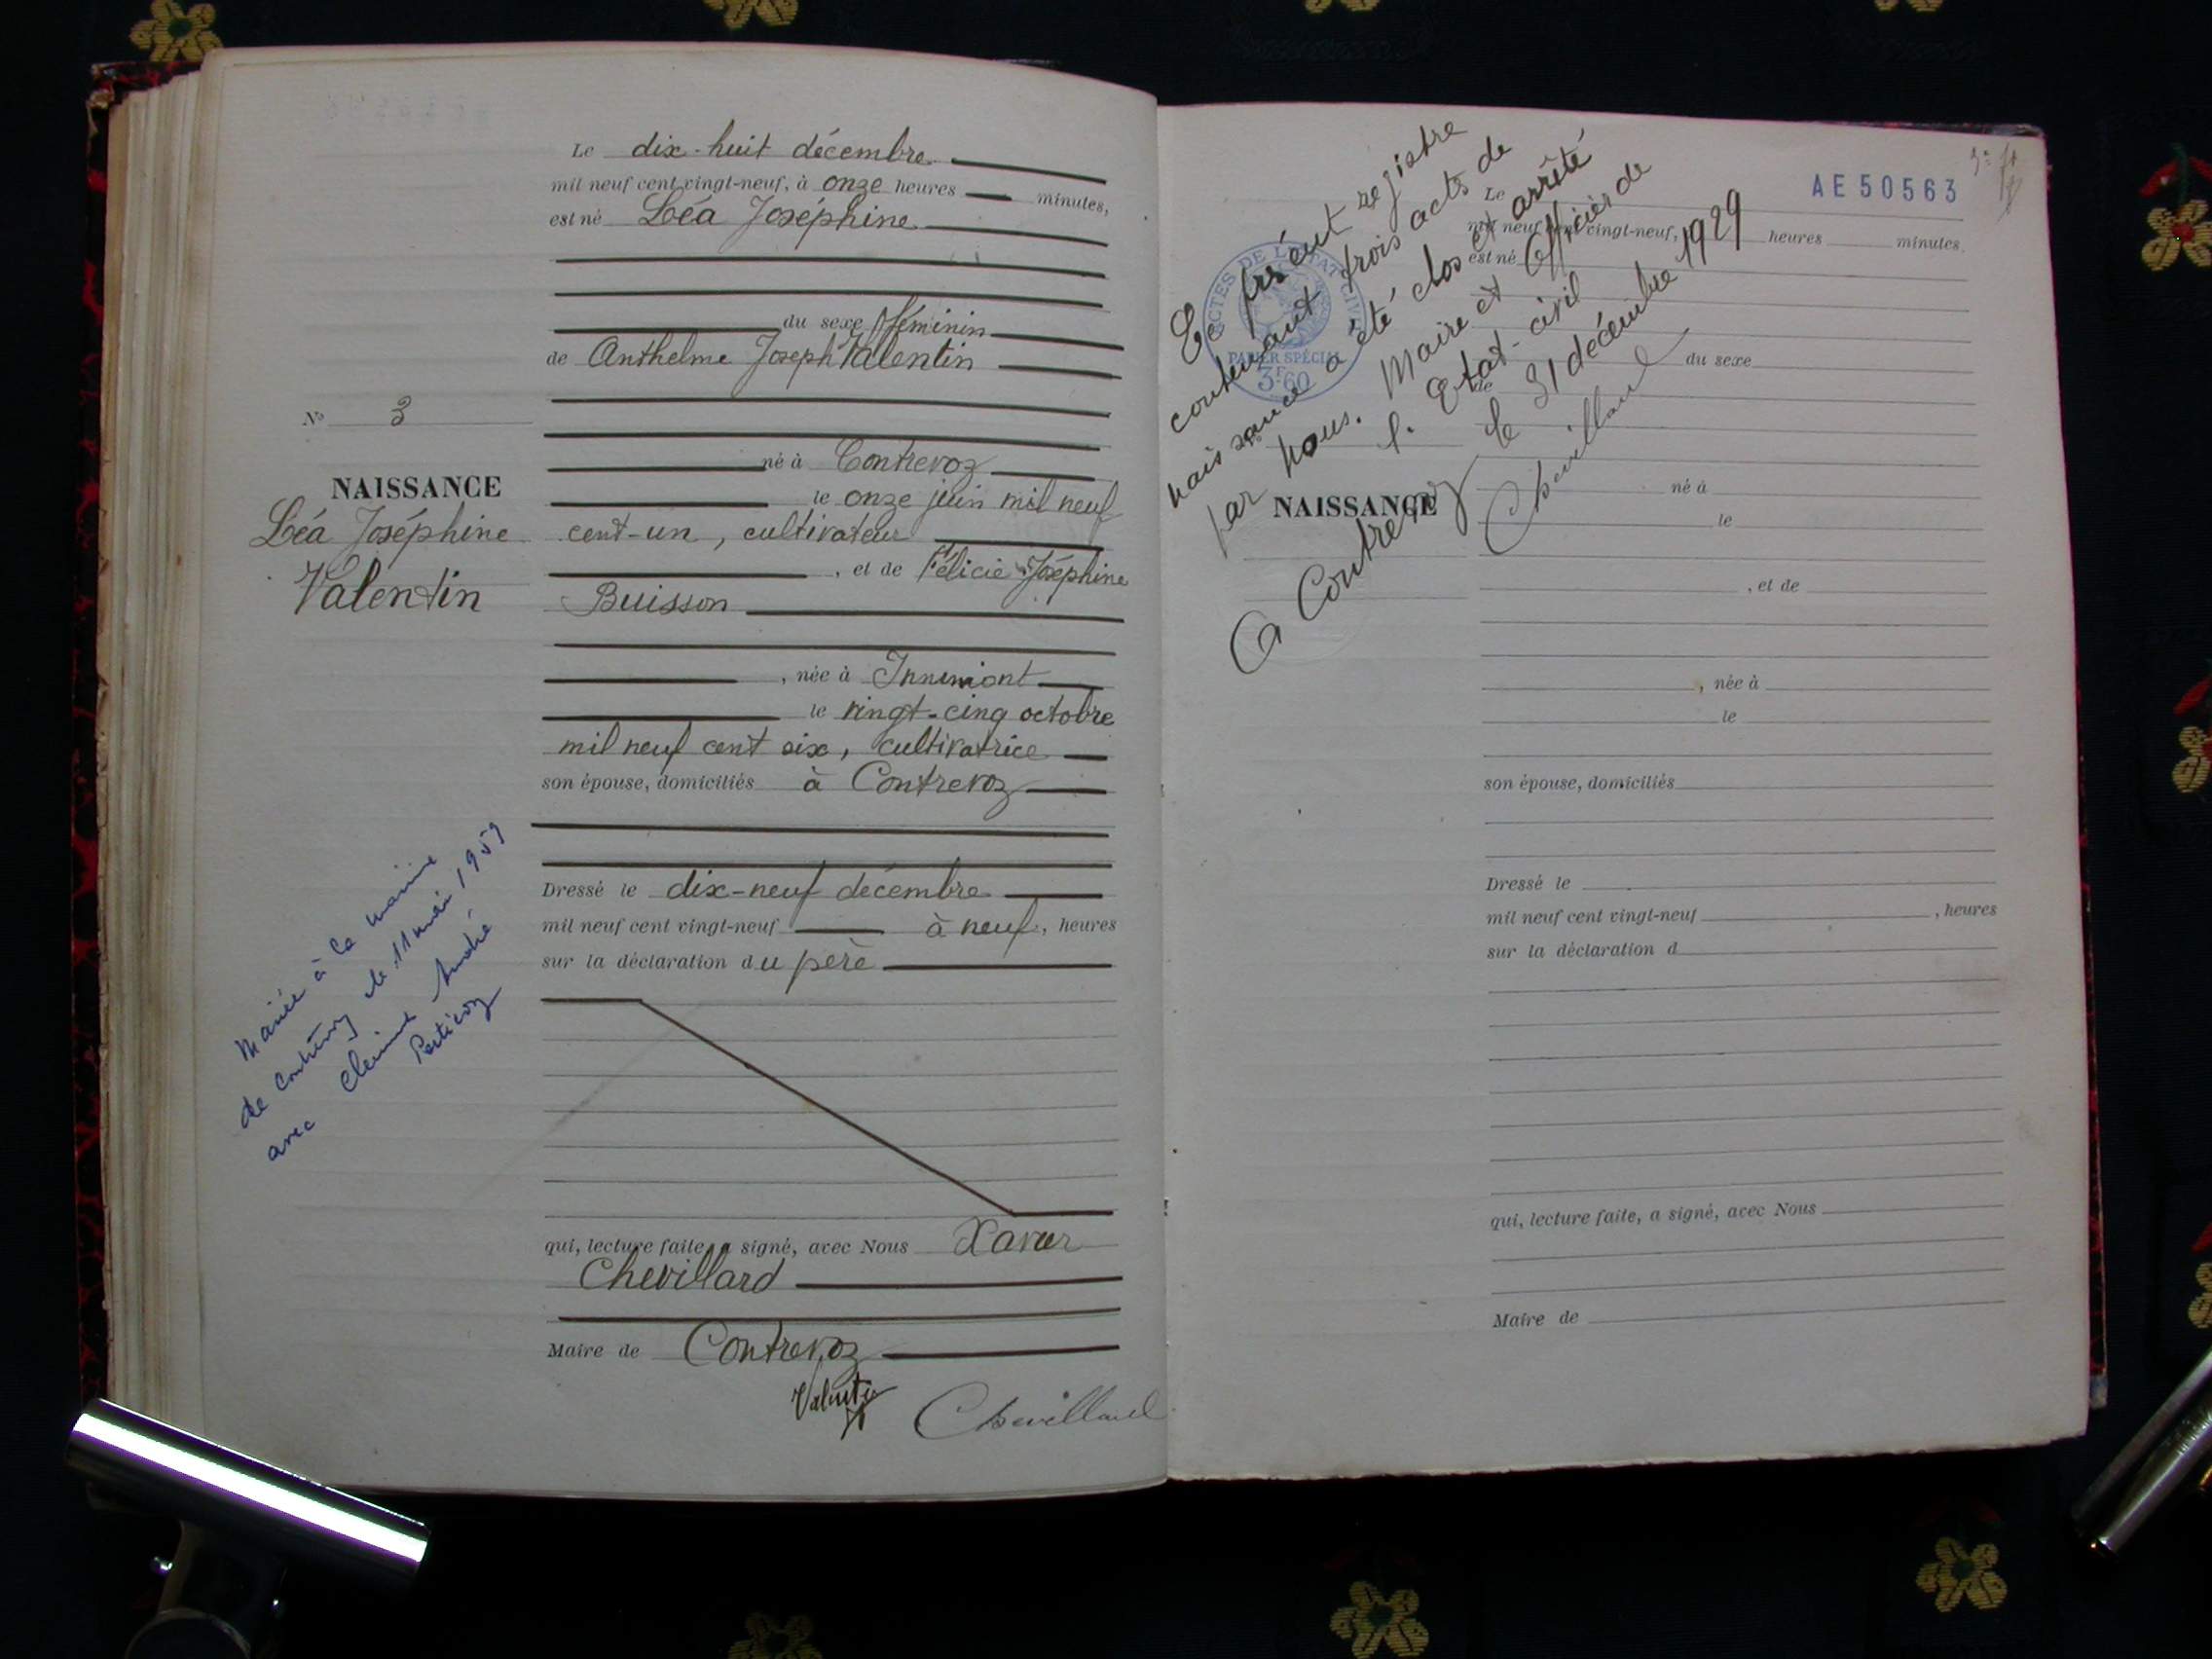 Le dix-huit décembre
mil neuf cent vingt-neuf, à onze heures minutes,
est né Léa Joséphine
du sexe féminin
de Anthelme Joseph Valentin
né à Contrevoz
le onze juin mil neuf
cent-un, cultivateur
, et de Félicie Joséphine
Buisson
, née à Innimont
le vingt-cinq octobre
mil neuf cent six, cultivatrice
son épouse, domiciliés à Contrevoz
Dressé le dix-neuf décembre
mil neuf cent vingt-neuf à neuf, heures
sur la déclaration du père
qui, lecture faite, a signé, avec Nous Xavier
Chevillard
Maire de Contrevoz
Valentin
Chevillard
No 3
NAISSANCE
Léa Joséphine
Valentin
Mariée à la mairie
de Contrevoz le 11 mai 1959
avec André
AE 50563
Le présent registre
contenant trois acts de
naissance a été clos et arrêté
par nous. Maire et Officier de
l. Etat-civil
A Contrevoz le 31 décembre 1929
Chevillard
ACTES DE L'ETAT CIVIL
PAPIER SPÉCIAL
3F60
NAISSANCE
Le
mil neuf cent vingt-neuf, heures minutes
est né
du sexe
de
né à
le
, et de
, née à
le
son épouse, domiciliés
Dressé le
mil neuf cent vingt-neuf , heures
sur la déclaration d
qui, lecture faite, a signé, avec Nous
Maire de